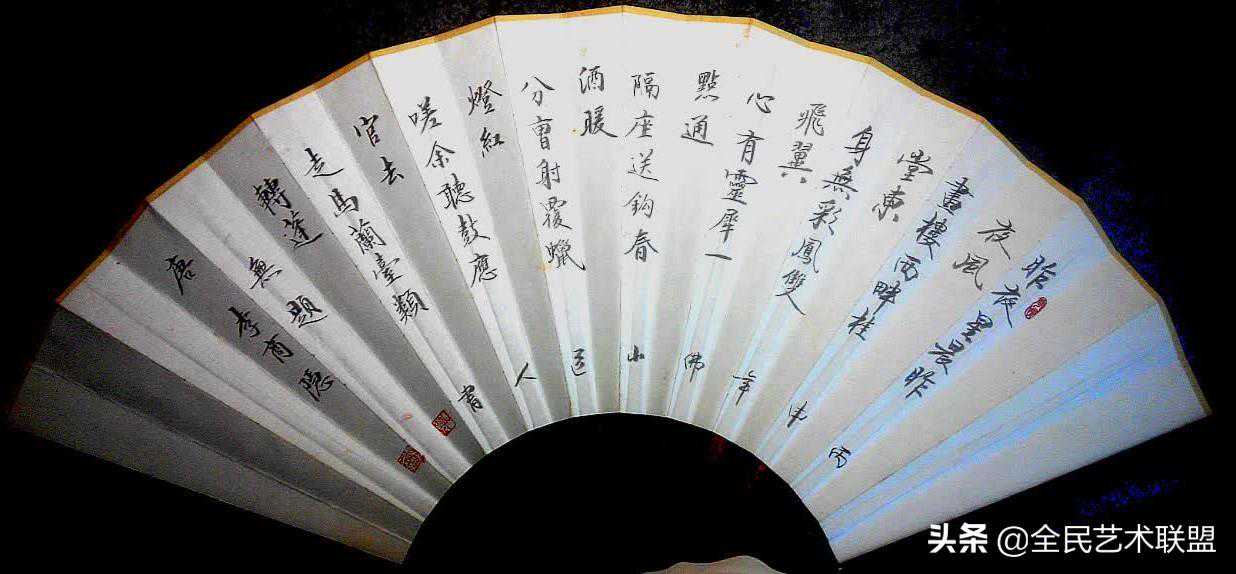 昨夜星晨昨
夜風
畫樓西畔桂
堂東
身無彩鳳雙
飛翼
心有靈犀一
點通
隔座送鈎春
酒暖
分曹射覆蠟
燈紅
嗟余聽鼓應
官去
走馬蘭臺類
轉蓬
無題
唐
李商隱
丙申年佛山道人書
头条 @全民艺术联盟